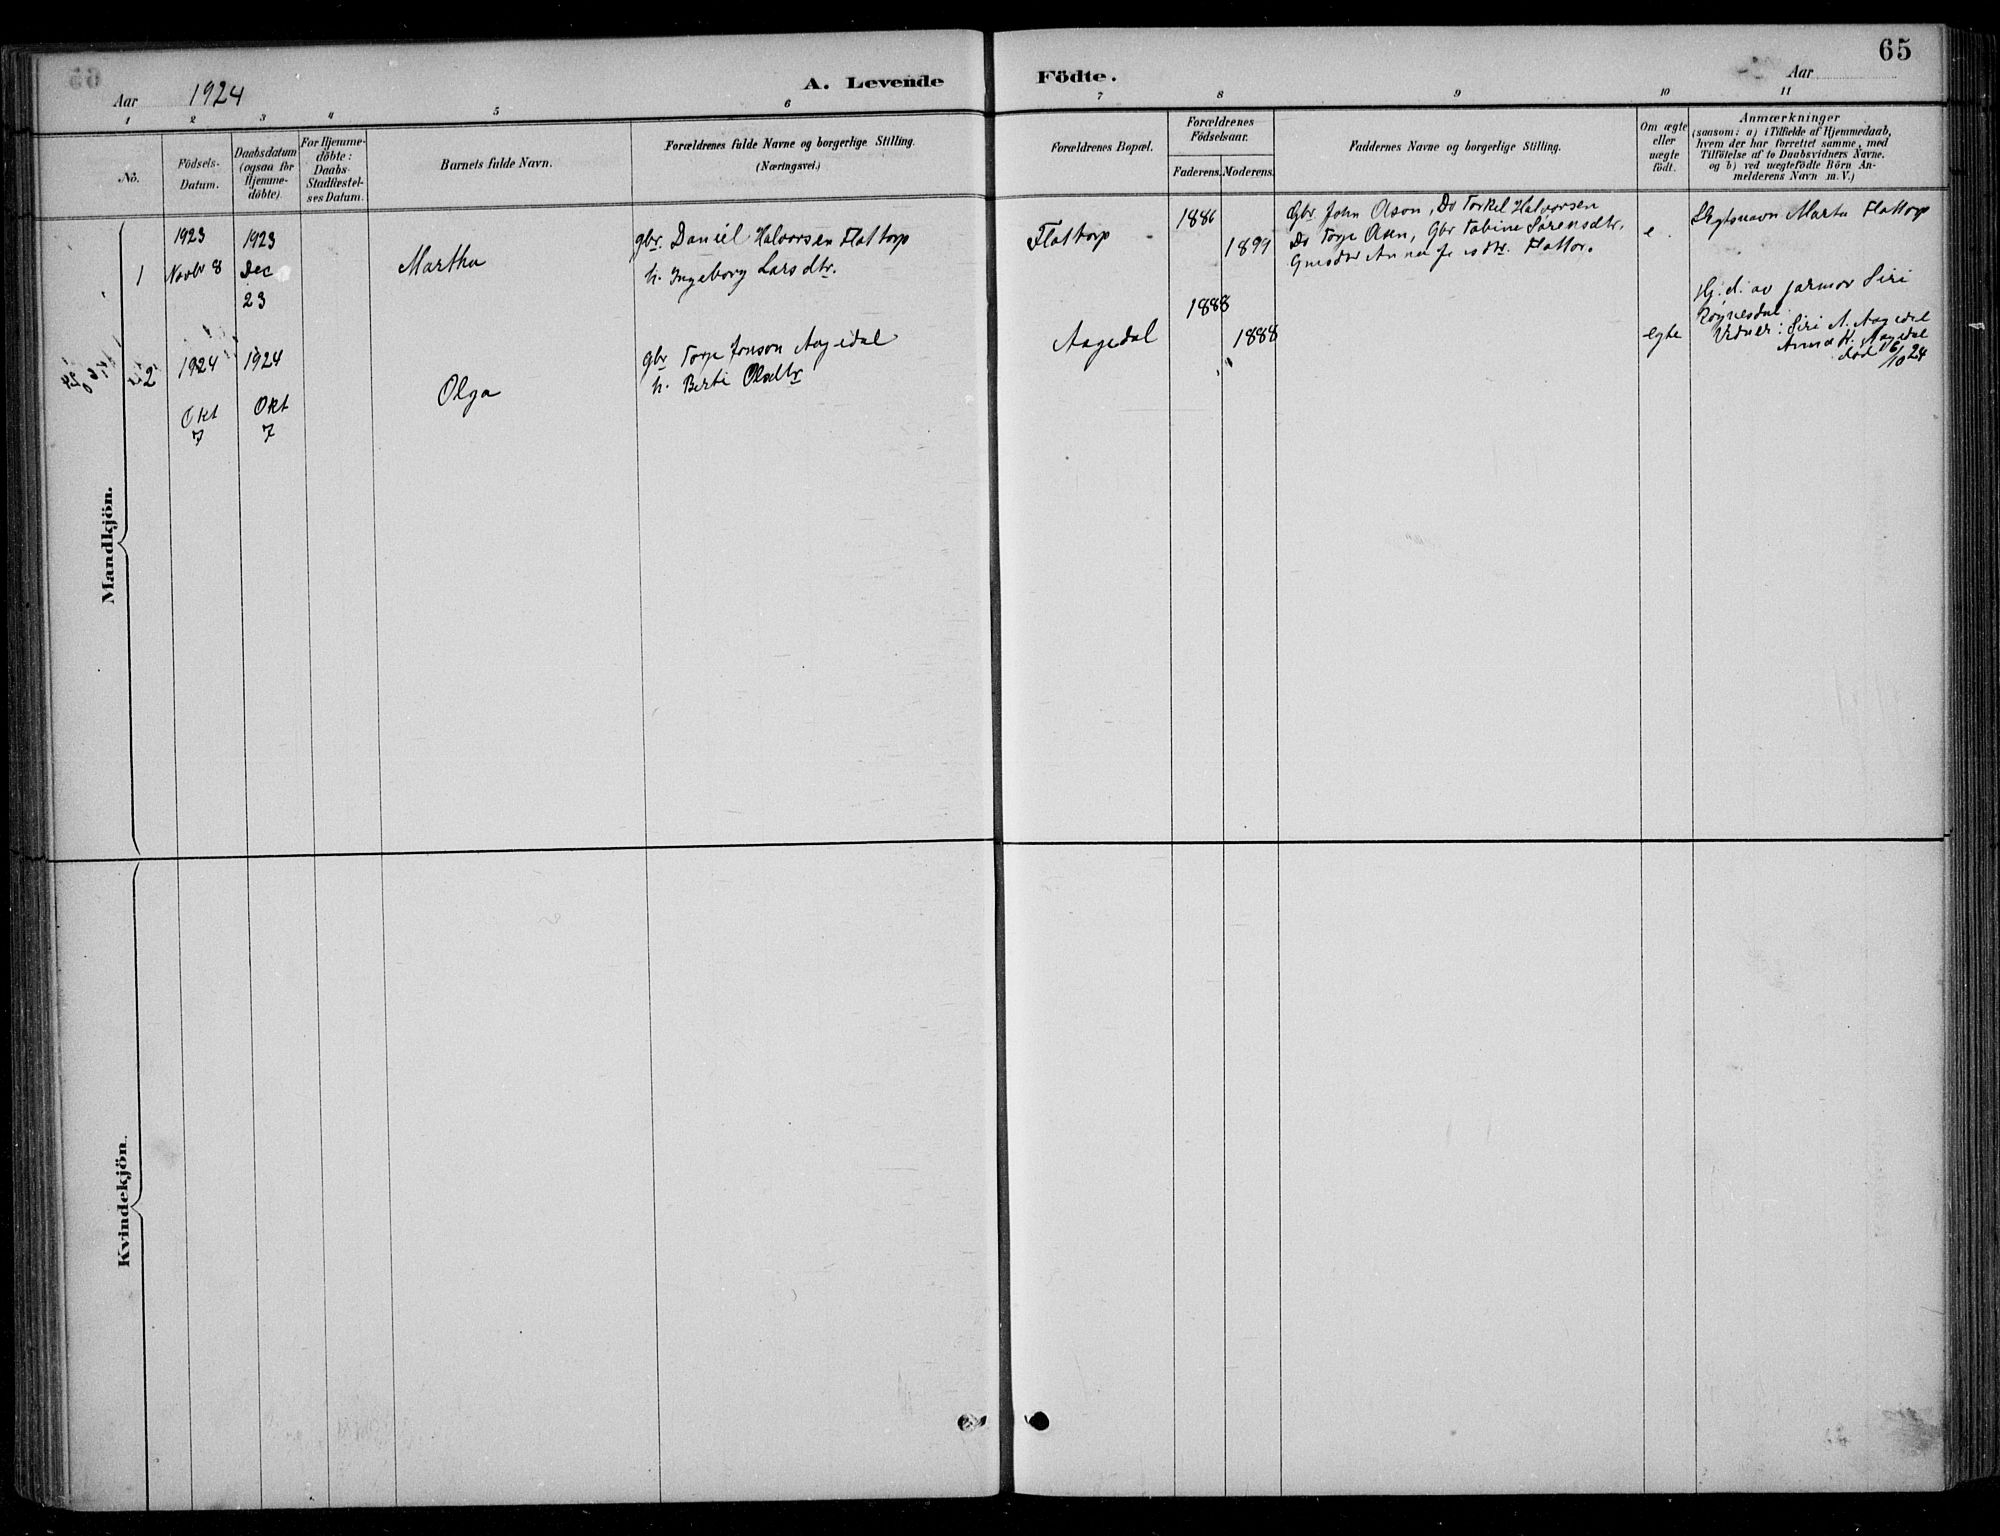 65
Aar 1924
A. Levende Födte.
Aar
1 2 3 4 5 6 7 8 9 10 11
No.
Födsels-
Datum.
Daabsdatum
(ogsaa for
Hjemme-
döbte).
For Hjemme-
döbte:
Daabs-
Stadfæstel-
ses Datum.
Barnets fulde Navn.
Forældrenes fulde Navne og borgerlige Stilling.
(Næringsvei.)
Forældrenes Bopæl.
Forældrenes
Födselsaar.
Faderens. Moderens.
Faddernes Navne og borgerlige Stilling.
Om ægte
eller
uægte
födt.
Anmærkninger
(saasom: a) i Tilfælde af Hjemmedaab,
hvem der har forrettet samme, med
Tilföielse af to Daabsvidners Navne.
og b) ved uægtefödte Börn An-
melderens Navn m. V.)
Mandkjön.
1
1923
Novbr 8
1923
Dec
23
Martha
gbr. Daniel Halvorsen Flottorp
h. Ingeborg Larsdtr.
Flottorp
1886
1899
Gbr John Olson, Do Torkel Halvorsen
Do Torje Gbr Tobine Sørensdtr.
Anna Flottor.
e.
Slegtsnavn Marta Flottorp
2
1924
Okt
7
1924
Okt
7
Olga
gbr Torje Jonson Aagedal
h. Berte Olsdtr
Aagedal
1888
1888
egte
Hj. d. av jormor Siri
Røynesdal
Vidner: Siri A. Aagedal
Anna K. Aagedal
død 16/10 24
Kvindekjön.